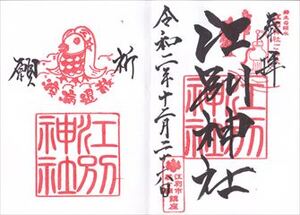 奉拝
江別神社
江別神社
令和二年十二月二十日
江別市
祈
願
江別神社